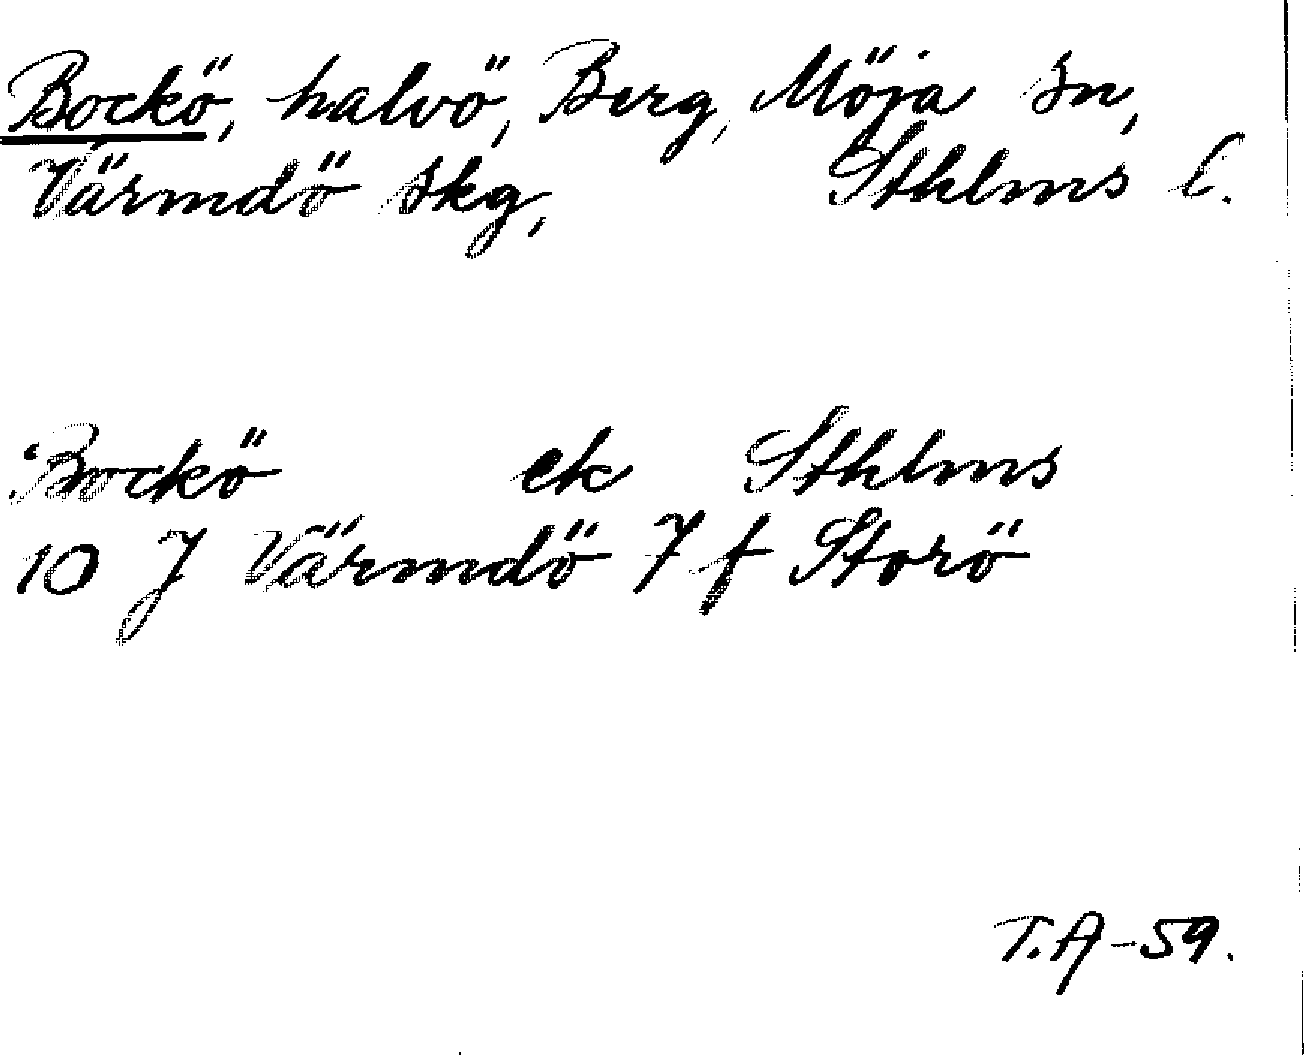 Bockö, halvö, Berg, Möja sn,
Värmdö skg, Sthlms l.
Bockö ek Sthlms
10 J Värmdö 7 f Storö
T.A-59.